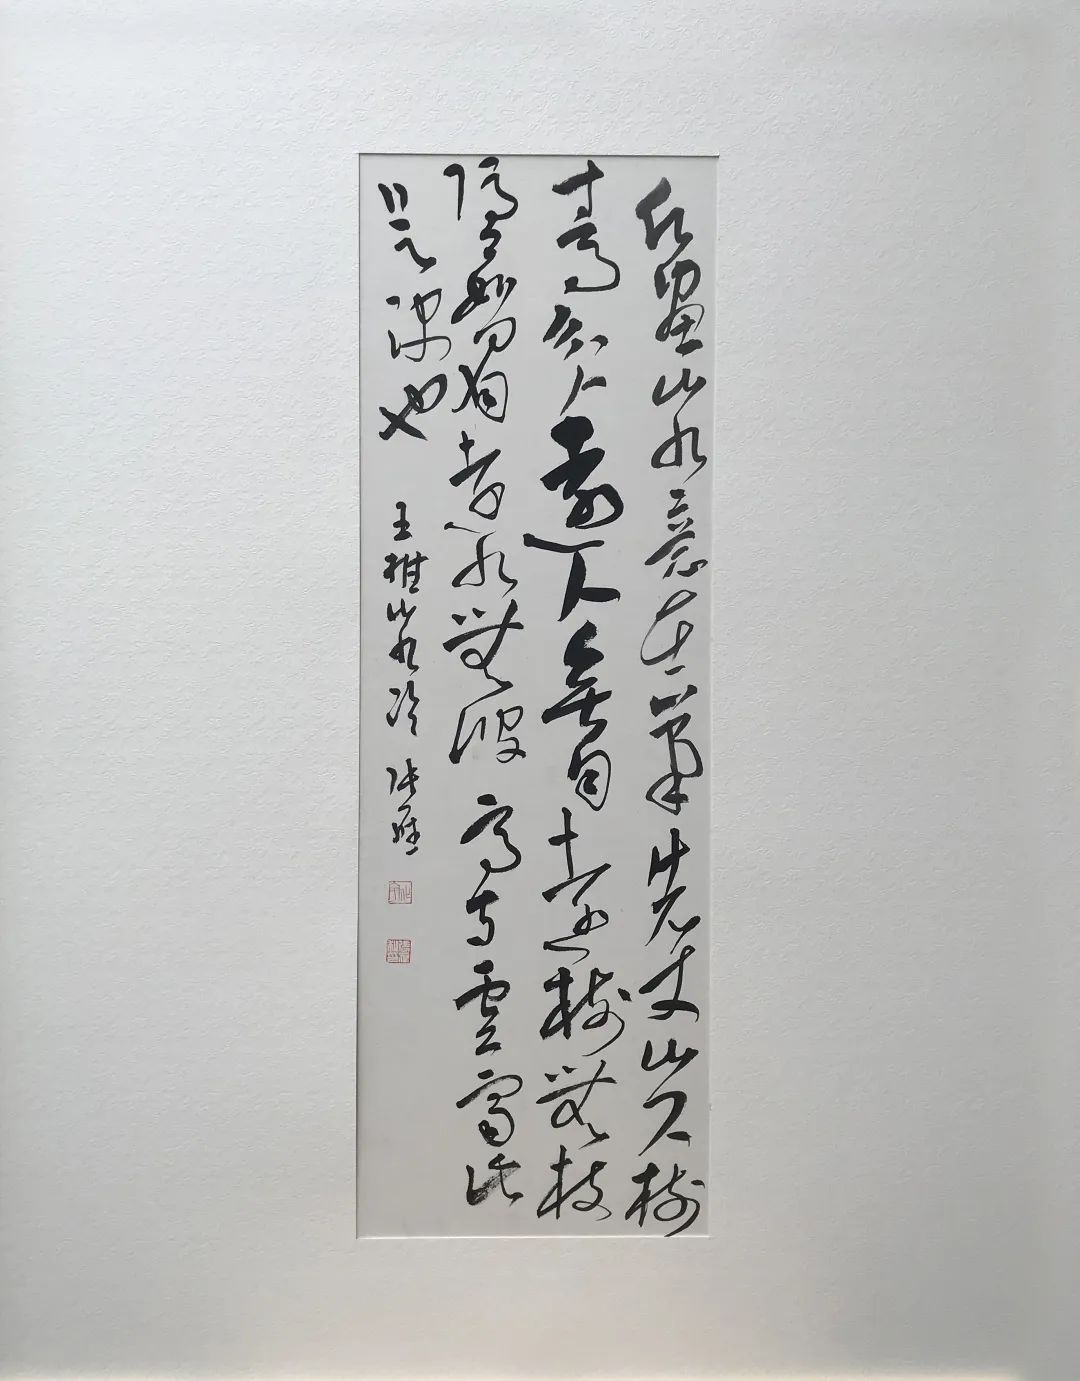 凡畫山水意在筆先丈山尺樹
寸馬分人遠人無目遠樹無枝
隱隱如眉遠水無波高與雲齊此
是訣也
王維山水論 張